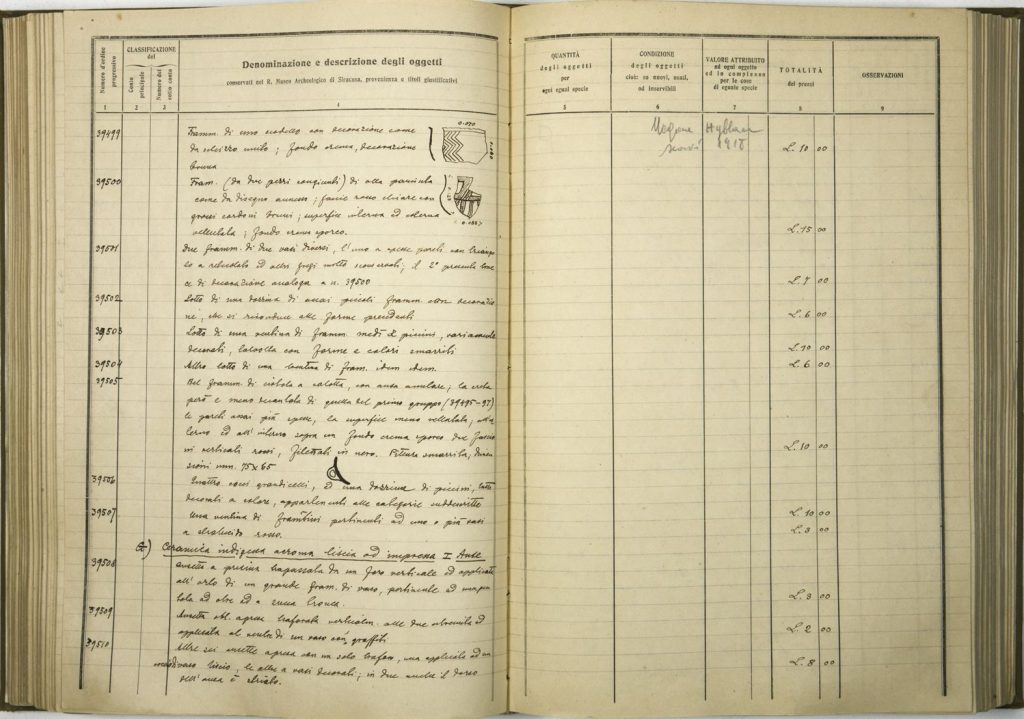 Numero d'ordine progressivo
CLASSIFICAZIONE del
Conto principale
Numero del sotto conto
Denominazione e descrizione degli oggetti
conservati nel R. Museo Archeologico di Siracusa, provenienza e titoli giustificativi
QUANTITÀ degli oggetti per ogni egual specie
CONDIZIONE degli oggetti cioè: se nuovi, usati, od inservibili
VALORE ATTRIBUITO ad ogni oggetto ed in complesso per le cose di eguale specie
TOTALITÀ dei prezzi
OSSERVAZIONI
1 2 3 4 5 6 7 8 9
39499 Framm. di vaso con decorazione come
da unito; fondo crema, decorazione
bruna L. 10 00
0.070
Megara Hyblaea
1918
39500 Fram. (da due pezzi congiunti) di olla
come da disegno annesso; fascie rosso chiare con
grossi cordoni bruni; superficie interna ed esterna
vellutata; fondo crema sporco. L. 15 00
Due framm. di due vasi diversi, l'uno a spesse pareti con triango
lo a reticolato ed altri fregi molto; il 2° presenta trac
ce di decorazione analoga a n. 39500 L. 7 00
39502 Lotto di una dozzina di assai piccoli framm. decorazio
ne, che si alle forme precedenti L. 6 00
39503 Lotto di una ventina di framm. medi e piccini, variamente
decorati, talvolta con forme e colori smarriti L. 10 00
39504 Altro lotto di una ventina di fram. idem idem. L. 6 00
39505 Bel framm. di ciotola a calotta, con ansa anulare; la creta
però è meno di quella del primo gruppo (39495-97)
le pareti assai più spesse, la superficie meno vellutata;
ed all'interno sopra un fondo crema sporco due fascio
ni verticali rossi, filettati in nero. Pittura smarrita, dimen
sioni mm. 75 x 65 L. 10 00
39506 Quattro cocci grandicelli, ed una dozzina di piccini, tutti
decorati a colore, appartenenti alle categorie suddescritte L. 10 00
39507 Una ventina di frantumi pertinenti ad uno o più vasi
a stralucido rosso. L. 3 00
Ceramica indigena acroma liscia ad impressa I Anse
39508 Ansetta a trapassata da un foro verticale ed applicata
all'orlo di un grande fram. di vaso, pertinente ad una pen
tola ad olre ad a zucca tronca. L. 3 00
39509 Ansetta traforata alle due estremità ed
applicata al ventre di un vaso con graffiti L. 2 00
39510 Altre sei ansette con un solo, una applicata ad un
vaso liscio, le altre a vasi decorati; in due anche il dorso
dell'ansa è striato. L. 8 00